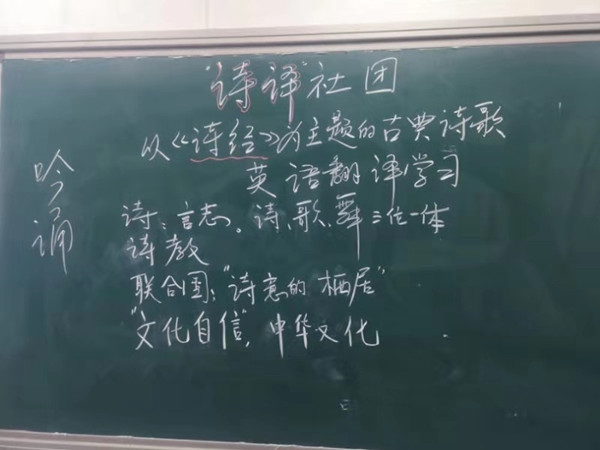 "诗译"社团
从《诗经》为主题的古典诗歌
英语翻译学习
吟诵
诗:言志。诗、歌、舞三位一体
诗教
联合国:"诗意的栖居"
"文化自信",中华文化